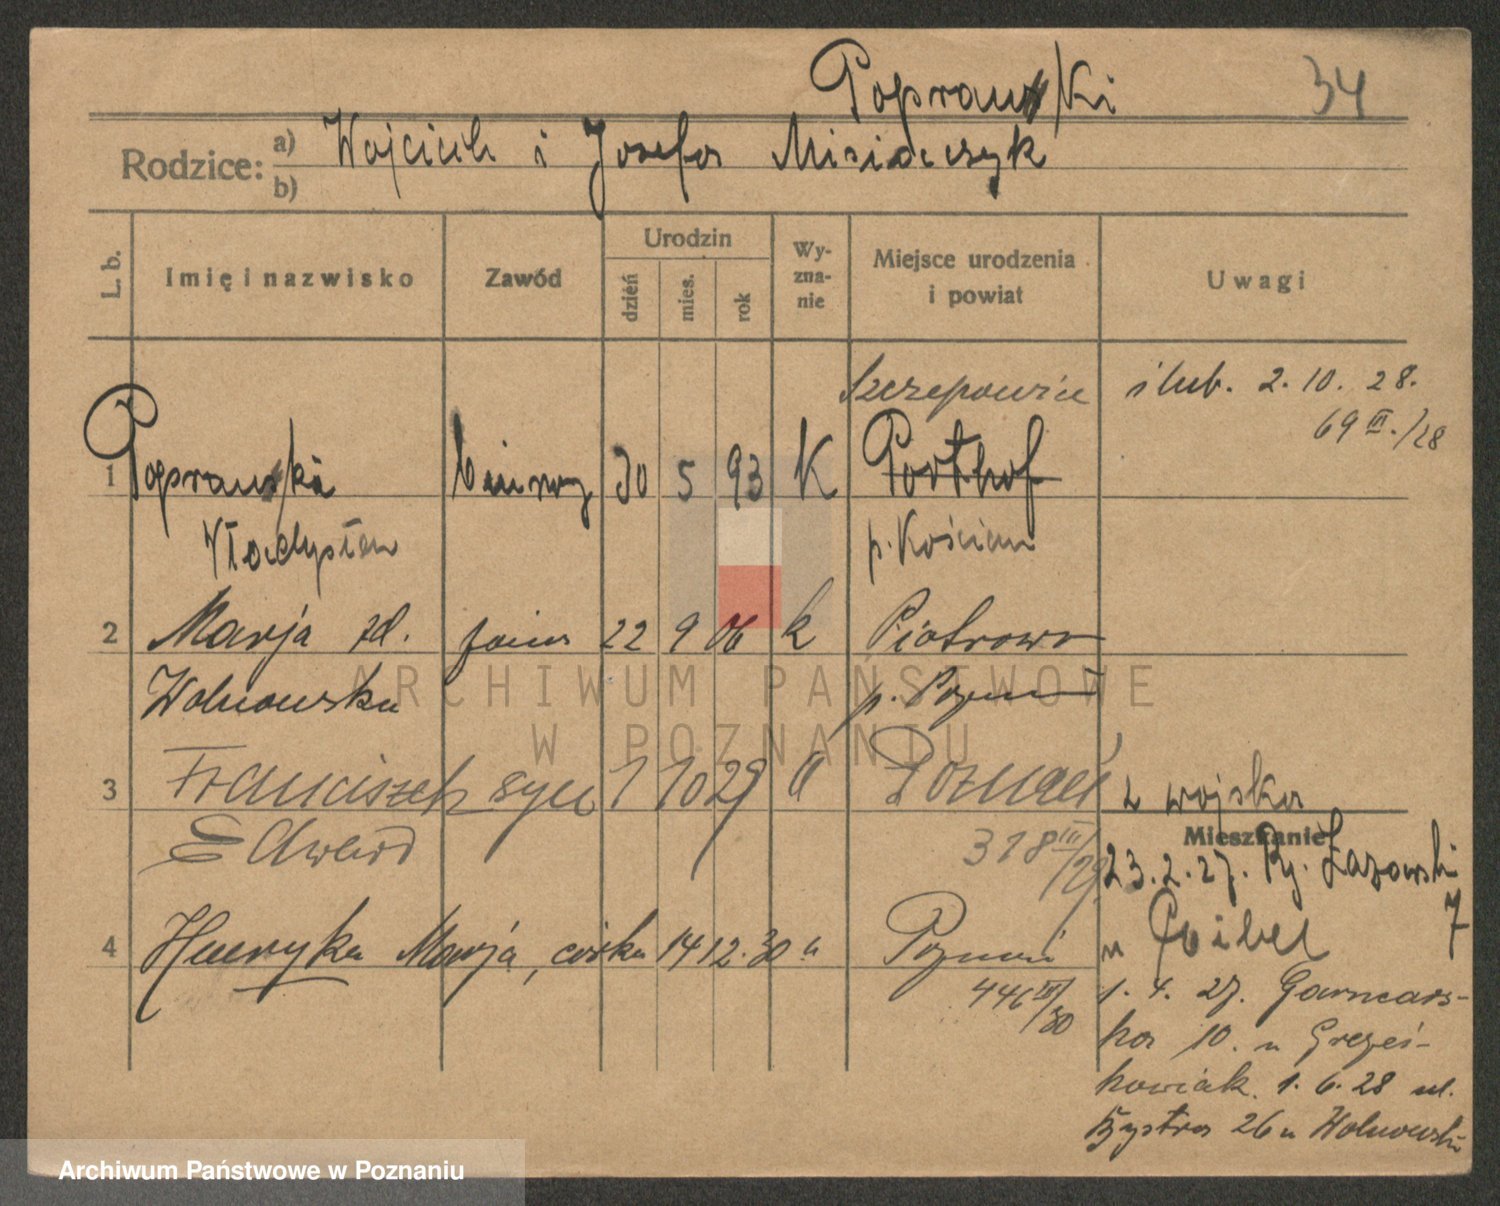 Poprawski 34
Rodzice: a) Wojciech i Józefa Misiaczyk
b)
L. b. Imię i nazwisko Zawód Urodzin dzień mies. rok Wyznanie Miejsce urodzenia i powiat Uwagi
Szczepowice ślub. 2. 10. 28.
69 III./28
1 Poprawski 30 5 93 K Porthof
Władysław p. Kościan
2 Marja zd. żona 22 9 06 k Piotrowo
Wolnowska p. Poznań
3 Franciszek syn 1 10 29 Poznań z wojska
Edward 318 III/29 Mieszkanie
23. 2. 27. Ry. Łazarski 7
4 Henryka Marja, córka 14 12. 30 " Poznań u
446 III/30 1. 4. 27. Garncars-
ka 10. u Grześ-
kowiak. 1. 6. 28 ul.
Bystra 26 u Wolnowski
ARCHIWUM PAŃSTWOWE
W POZNANIU
Archiwum Państwowe w Poznaniu